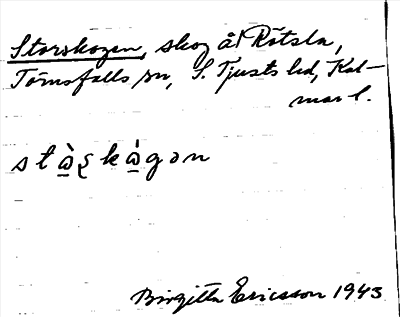 Storskogen, skog åt Rötsla,
Törnsfalls sn, S. Tjusts hd, Kal-
mar l.
stà̱ʂkà̱gən
Birgitta Ericsson 1943